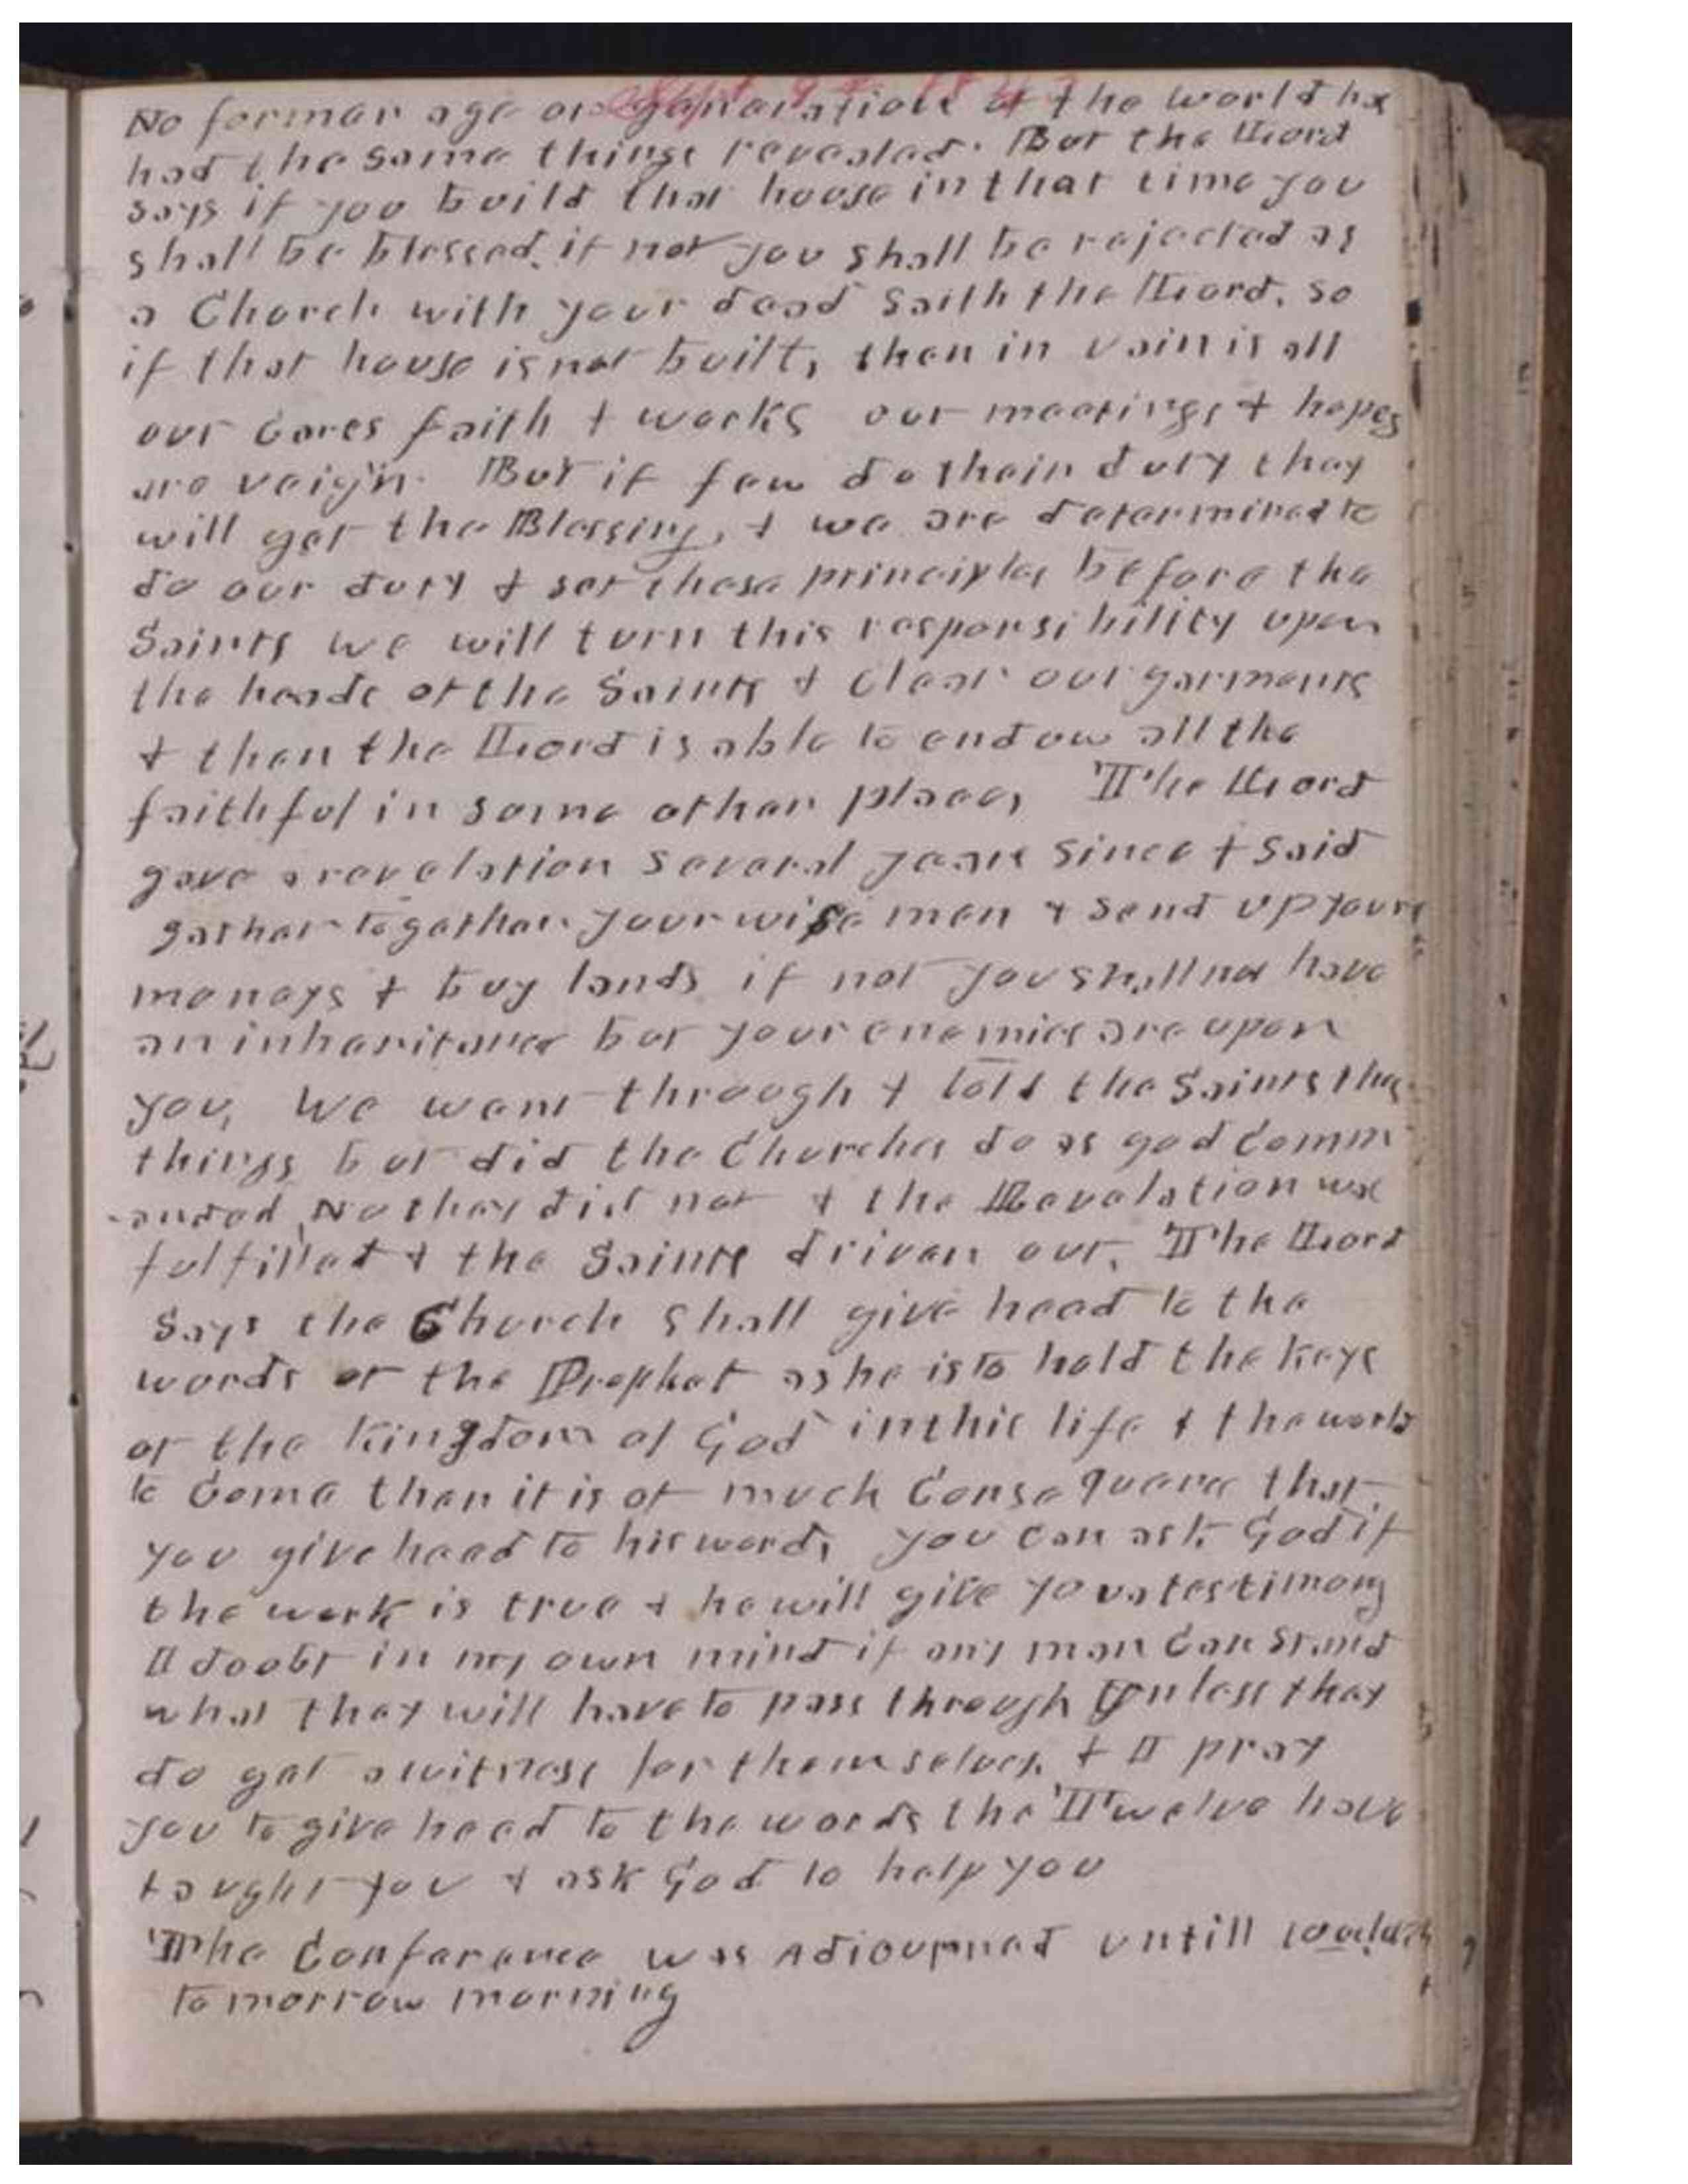 Sept 9th 1843
No former age or generation of the world has
had the same things revealed. But the Lord
says if you build that house in that time you
shall be blessed, if not you shall be rejected as
a Church with your dead saith the Lord, so
if that house is not built, then in vain is all
our Cares faith & works our meetings & hopes
are veign. But if few do their duty they
will get the Blessing, & we are determined to
do our duty & set these principles before the
Saints we will turn this responsibility upon
the heads of the Saints & Clear our garments
& then the Lord is able to endow all the
faithful in some other place, The Lord
gave a revelation several years since & said
gather together your wise men & send up your
moneys & buy lands if not you shall not have
an inheritance but your enemies are upon
you, We went through & told the Saints these
things but did the Churches do as god Comm
-anded No they did not & the Revelation was
fulfilled & the Saints driven out. The Lord
Says the Church shall give heed to the
words of the Prophet as he is to hold the keys
of the kingdom of God in this life & the world
to Come then it is of much Consequence that
you give heed to his word, you can ask God if
the work is true & he will give you a testimony
I doubt in my own mind if any man Can stand
what they will have to pass through Unless they
do get a witness for themselves, & I pray
you to give heed to the words the Twelve have
taught you & ask God to help you
The Conference was adjourned untill 10 oclock
to morrow morning